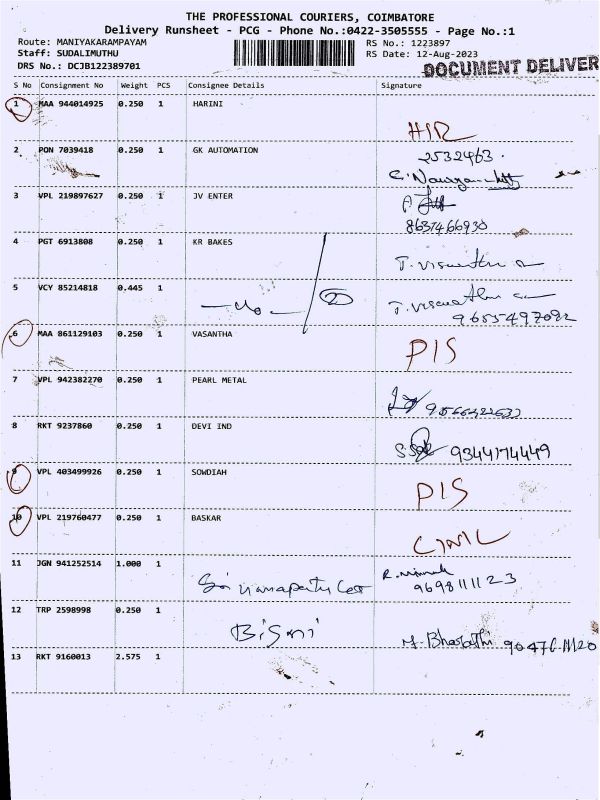 THE PROFESSIONAL COURIERS, COIMBATORE
Delivery Runsheet - PCG - Phone No.:0422-3505555 - Page No.:1
Route: MANIYAKARAMPAYAM RS No.: 1223897
Staff: SUDALIMUTHU RS Date: 12-Aug-2023
DRS No.: DCJB122389701 DOCUMENT DELIVER
S No Consignment No Weight PCS Consignee Details Signature
1 MAA 944014925 0.250 1 HARINI
2 PON 7039418 0.250 1 GK AUTOMATION 2532463
3 VPL 219897627 0.250 1 JV ENTER
8637466930
4 PGT 6913808 0.250 1 KR BAKES
5 VCY 85214818 0.445 1 2
9655497092
6 MAA 861129103 0.250 1 VASANTHA
PIS
7 VPL 942382270 0.250 1 PEARL METAL
8 RKT 9237860 0.250 1 DEVI IND
9344174449
9 VPL 403499926 0.250 1 SOWDIAH
PIS
10 VPL 219760477 0.250 1 BASKAR
11 JGN 941252514 1.000 1
9698111123
12 TRP 2598998 0.250 1
M. Bharathi
13 RKT 9160013 2.575 1